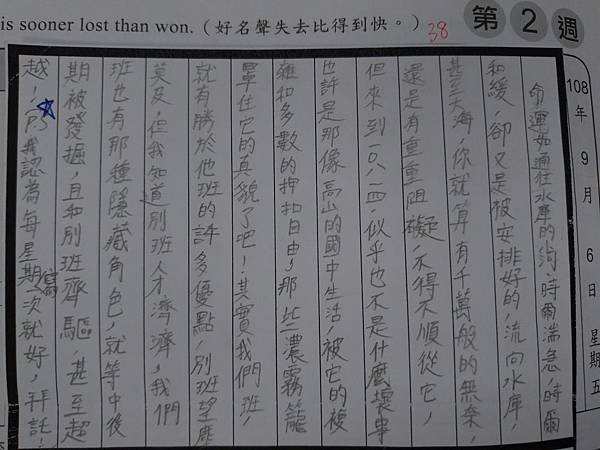 is sooner lost than won.(好名聲失去比得到快。)
38
第2週
108年9月6日 星期五
命運如通往水庫的溝,時爾湍急,時爾
和緩,卻又是被安排好的,流向水庫,
甚至大海,你就算有千萬般的無奈,
還是有重重阻礙,不得不順從它,
但來到一〇八二四,似乎也不是什麼壞事
也許是那像高山的國中生活,被它的複
雜和多數的押扣自由,那些濃霧籠
罩住它的真貌了吧!其實我們班,
就有勝於他班的許多優點,別班望塵
莫及,但我知道別班人才濟濟,我們
班也有那種隱藏角色,就等中後
期被發掘,且和別班齊驅,甚至超
越!☆我認為每星期寫一次就好,拜託!